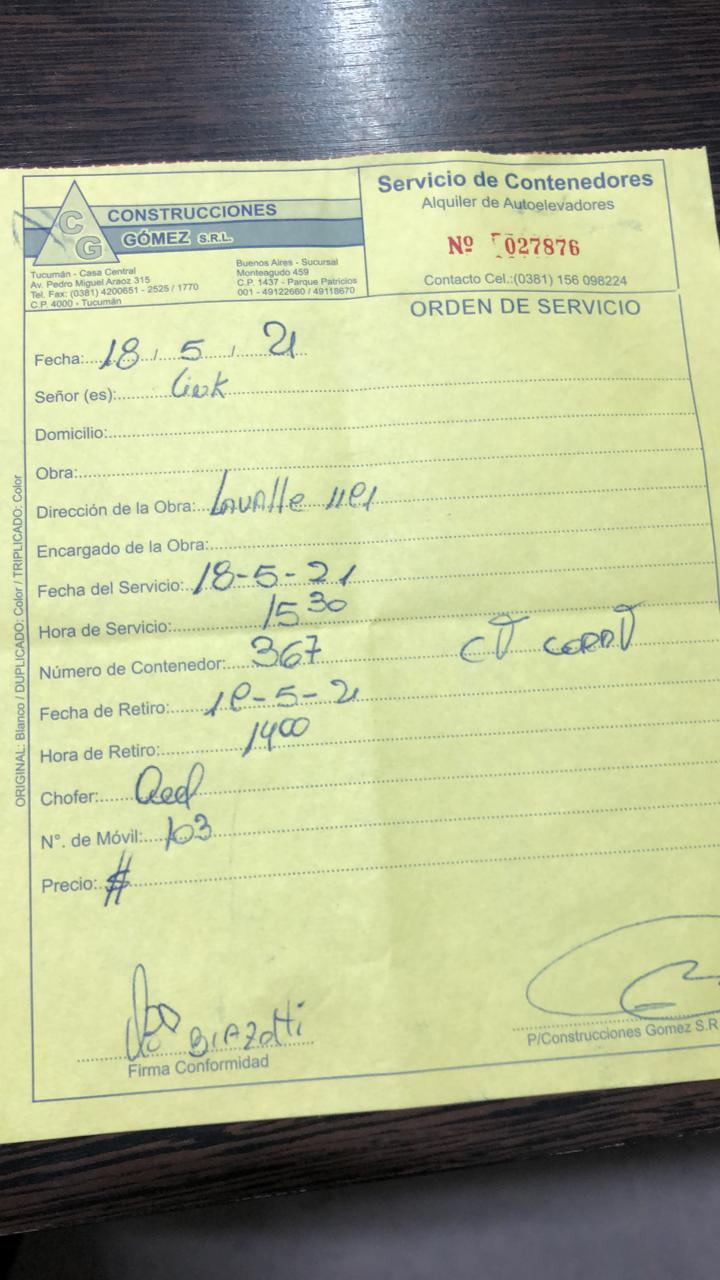 CG CONSTRUCCIONES
GÓMEZ S.R.L.
Tucumán - Casa Central
Av. Pedro Miguel Araoz 315
Tel. Fax: (0381) 4200651 - 2525 / 1770
C.P. 4000 - Tucumán
Buenos Aires - Sucursal
Monteagudo 459
C.P. 1437 - Parque Patricios
001 - 49122660 / 49118670
Servicio de Contenedores
Alquiler de Autoelevadores
Nº 027876
Contacto Cel.:(0381) 156 098224
ORDEN DE SERVICIO
Fecha: 18 / 5 / 21
Señor (es):
Domicilio:
Obra:
Dirección de la Obra: Lavalle
Encargado de la Obra:
Fecha del Servicio: 18-5-21
Hora de Servicio: 15 30
Número de Contenedor: 367
Fecha de Retiro: -5-21
Hora de Retiro: 1400
Chofer:
N°. de Móvil: 103
Precio: #
BIAZotti
Firma Conformidad
P/Construcciones Gomez S.R
ORIGINAL: Blanco / DUPLICADO: Color / TRIPLICADO: Color